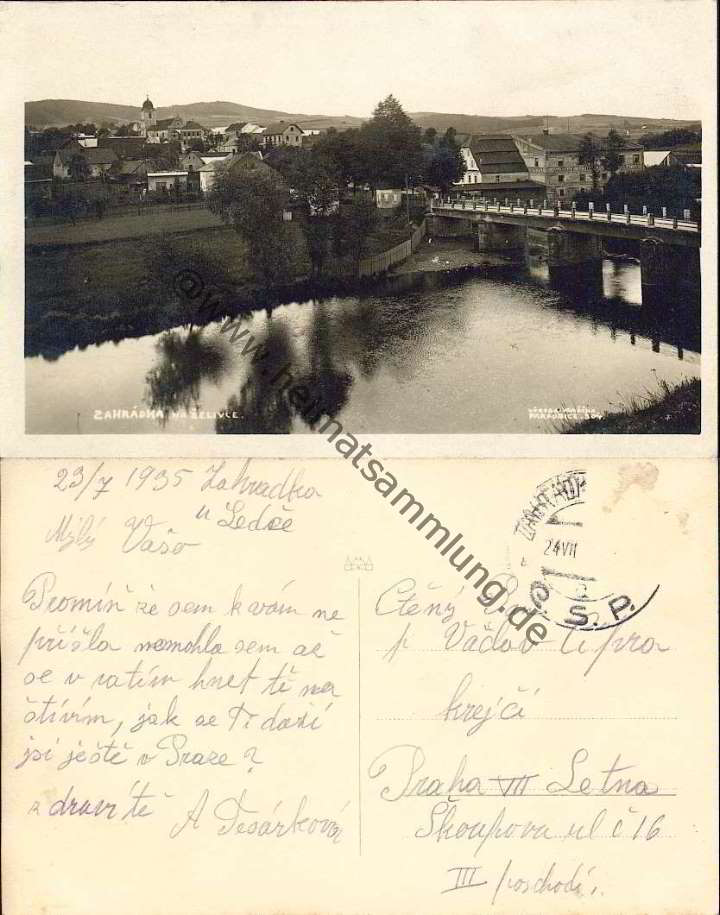 ZAHRÁDKA NA ŽELIVCE.
PARDUBICE. 504
© www.heimatsammlung.de
23/7 1935 Zahradka
u Ledče
Milý Vašo
Promiň že sem k vám ne
přišla nemohla sem až
se v ratím hnet tě nav
štívím, jak se Ti daží
jsi ještě v Praze?
zdraví tě
A Tesárková
ZAHRÁDK
24 VII
Č. S. P.
Ctěný Pan
p Václav Cipra
krejčí
Praha VII Letna
Skoupova ul č 16
III poschodí,